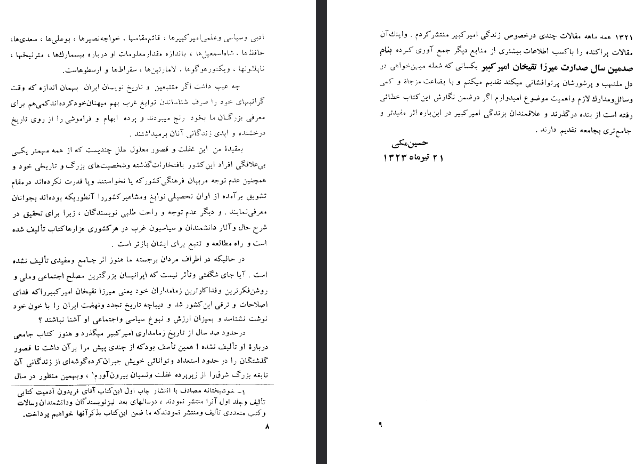 ادبی وسیاسی وعلمی امیرکبیرها ، قائم‌مقامها ، خواجه‌نصیرها ، بوعلی‌ها ، سعدیها،
حافظ‌ها ، شاه‌اسمعیل‌ها ، باندازه مقدار معلومات او درباره بیسمارك‌ها ، مترنیخ‌ها ،
ناپلئونها ، ویکتورهوگوها ، لامارتین‌ها ، سقراط‌ها و ارسطوهاست.
چه عیب داشت اگر متقدمین و تاریخ نویسان ایران بهمان اندازه که وقت
گرانبهای خود را صرف شناساندن نوابغ غرب بهم میهنان خود کرده‌اند کمی‌هم برای
معرفی بزرگان ما بخود رنج میبردند و پرده ابهام و فراموشی را از روی تاریخ
درخشنده و ابدی زندگانی آنان برمیداشتند.
بعقیدهٔ من این غفلت و قصور معلول علل چندیست که از همه مهمتر یکی
بی‌علاقگی افراد این کشور بافتخارات گذشته وشخصیت‌های بزرگ و تاریخی خود و
همچنین عدم توجه مربیان فرهنگی کشور که یا نخواستند ویا قدرت نکرده‌اند درمقام
تشویق برآمده از اوان تحصیلی نوابغ ومشاهیر کشور را آنطوریکه بوده‌اند بجوانان
معرفی نمایند . و دیگر عدم توجه و راحت طلبی نویسندگان ، زیرا برای تحقیق در
شرح حال وآثار دانشمندان و سیاسیون غرب در هر کشوری هزارها کتاب تألیف شده
است و راه مطالعه و تتبع برای ایشان بازتر است .
در حالیکه در اطراف مردان برجسته ما هنوز اثر جامع ومفیدی تألیف نشده
است . آیا جای شگفتی وتأثر نیست که ایرانیان بزرگترین مصلح اجتماعی وملی و
روشن‌فکرترین وفداکارترین زمامداران خود یعنی میرزا تقیخان امیرکبیر را که فدای
اصلاحات و ترقی این کشور شد و دیباچه تاریخ تجدد ونهضت ایران را با خون خود
نوشت نشناسند و بمیزان ارزش و نبوغ سیاسی واجتماعی او آشنا نباشند ؟
در حدود صد سال از تاریخ زمامداری امیرکبیر میگذرد و هنوز کتاب جامعی
دربارهٔ او تألیف نشده ۱ همین تأسف بود که از چندی پیش مرا برآن داشت تا قصور
گذشتگان را در حدود استعداد وتوانائی خویش جبران کرده گوشه‌ای از زندگانی آن
نابغه بزرگ شرق را از زیر پرده غفلت ونسیان بیرون آورم ، وبهمین منظور در سال
۱ـ خوشبختانه مصادف با انتشار چاپ اول این کتاب آقای فریدون آدمیت کتابی
تألیف وجلد اول آنرا منتشر نمودند ، درسالهای بعد نیز نویسندگان ودانشمندان رسالات
وکتب متعددی تألیف ومنتشر نمودند که ما ضمن این کتاب بذکر آنها خواهیم پرداخت.
۸
۱۳۲۱ همه ماهه مقالات چندی درخصوص زندگی امیرکبیر منتشر کردم . واینك آن
مقالات پراکنده را باکسب اطلاعات بیشتری از منابع دیگر جمع آوری کرده بنام
صدمین سال صدارت میرزا تقیخان امیر کبیر بکسانی که شعله میهن‌خواهی در
دل ملتهب و پرشورشان پرتوافشانی میکند تقدیم میکنم و با بضاعت مزجاة و کمی
وسائل ومدارك لازم واهمیت موضوع امیدوارم اگر درضمن نگارش این کتاب خطائی
رفته است از بنده درگذرند و علاقمندان بزندگی امیرکبیر در این باره اثر مفیدتر و
جامع‌تری بجامعه تقدیم دارند .
حسین مکی
۲۱ تیرماه ۱۳۲۳
۹